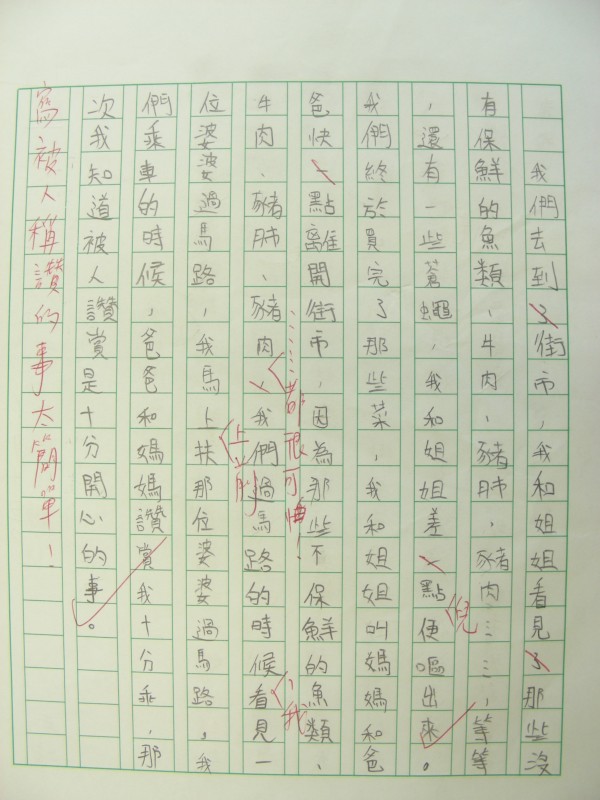 我們去到了街市，我和姐姐看見了那些沒
有保鮮的魚類、牛肉、豬肺、豬肉……，等等
，還有一些蒼蠅，我和姐姐差一點便嘔出來。
我們終於買完了那些菜，我和姐姐叫媽媽和爸
爸快一點離開街市，因為那些不保鮮的魚類、
……都很可怕！
，我
牛肉、豬肺、豬肉，我們過馬路的時候看見一
位婆婆過馬路，我馬上扶那位婆婆過馬路，我
們乘車的時候，爸爸和媽媽讚賞我十分乖，那
次我知道被人讚賞是十分開心的事。
寫被人稱讚的事太簡單！